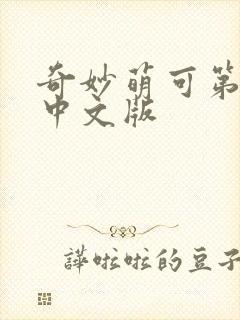 奇妙萌可第
中文版
譁啦啦的豆子